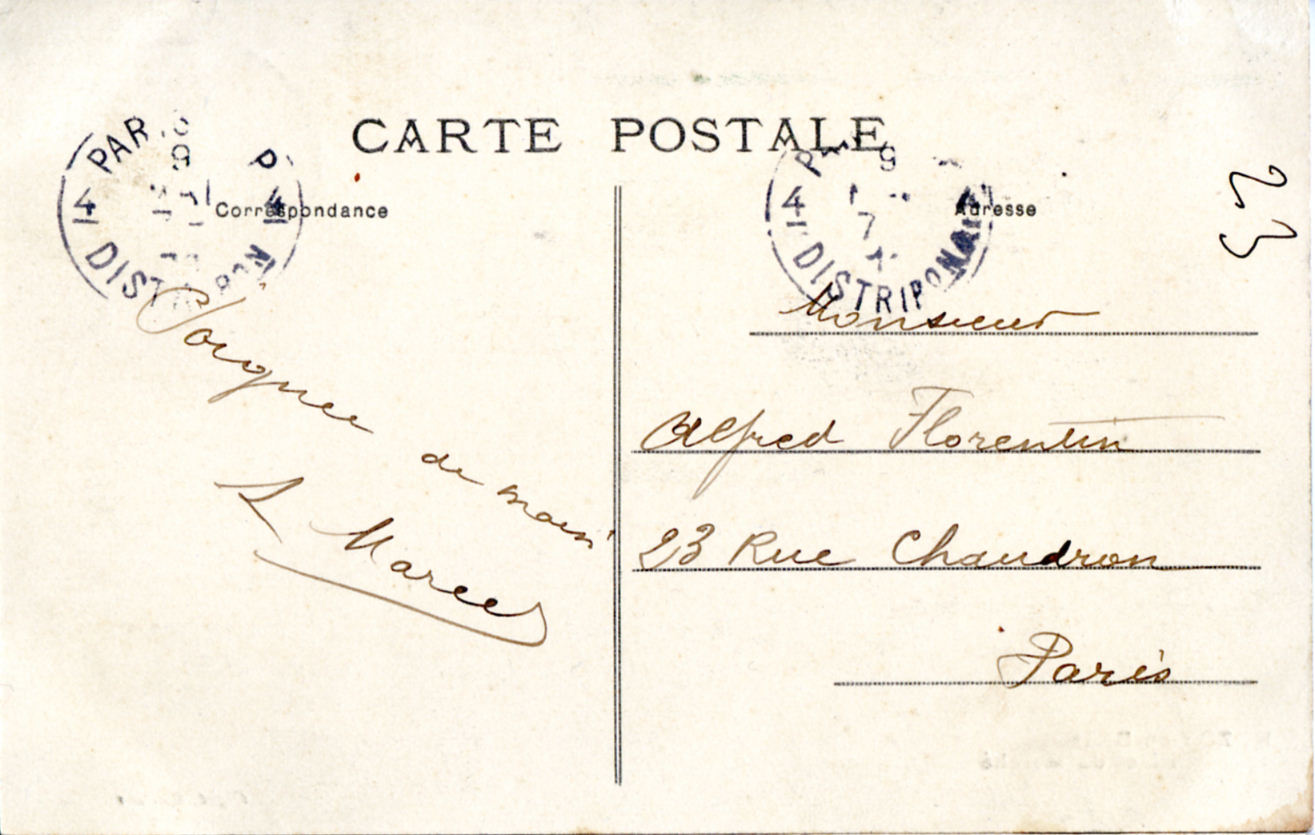 CARTE POSTALE
Correspondance
Adresse
PARIS P
9
4 4
DISTRIBUTION
9
7
4
DISTRIB
23
Poignée
de main
L Marcel
Monsieur
Alfred Florentin
23 Rue Chaudron
Paris